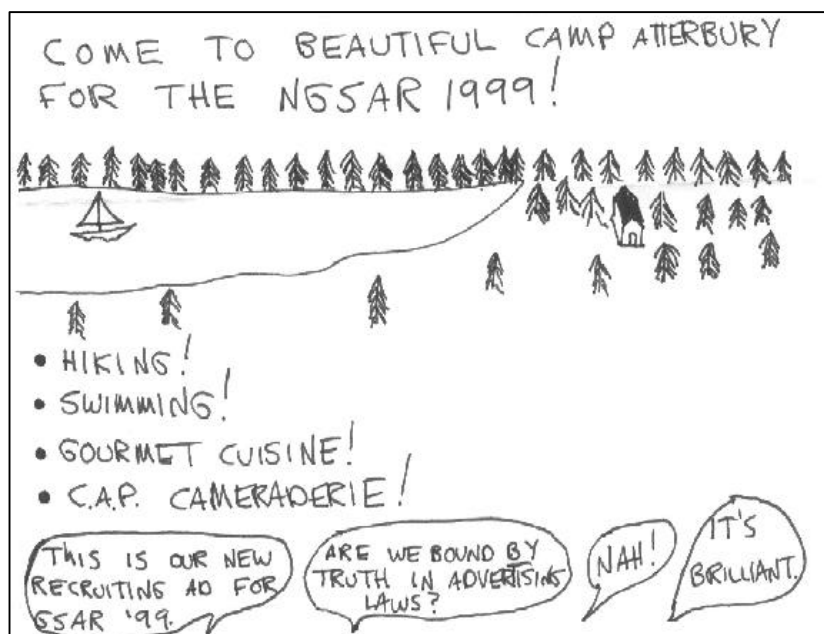 COME TO BEAUTIFUL CAMP ATTERBURY
FOR THE NGSAR 1999!
• HIKING!
• SWIMMING!
• GOURMET CUISINE!
• C.A.P. CAMERADERIE!
THIS IS OUR NEW
RECRUITING AD FOR
GSAR '99.
ARE WE BOUND BY
TRUTH IN ADVERTISING
LAWS?
NAH!
IT'S
BRILLIANT.